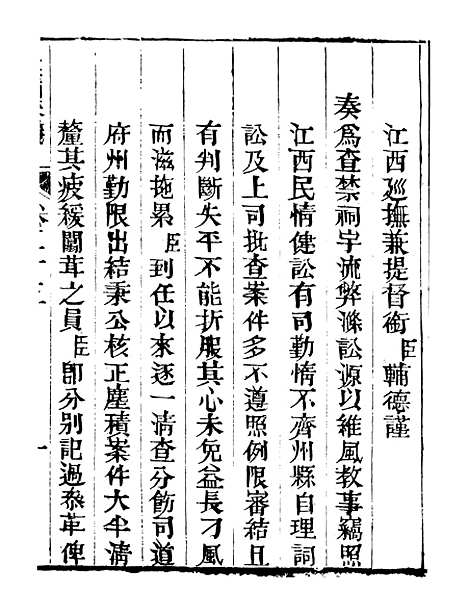 江西廵撫兼提督銜臣輔德謹
奏爲查禁祠宇流弊滌訟源以維風教事竊照
江西民情健訟有司勤惰不齊州縣自理詞
訟及上司批查案件多不遵照例限審結且
有判斷失平不能折服其心未免益長刁風
而滋拖累臣到任以來逐一清查分飭司道
府州勤限出結秉公核正塵積案件大半清
釐其疲緩闒茸之員臣卽分別記過叅革俾